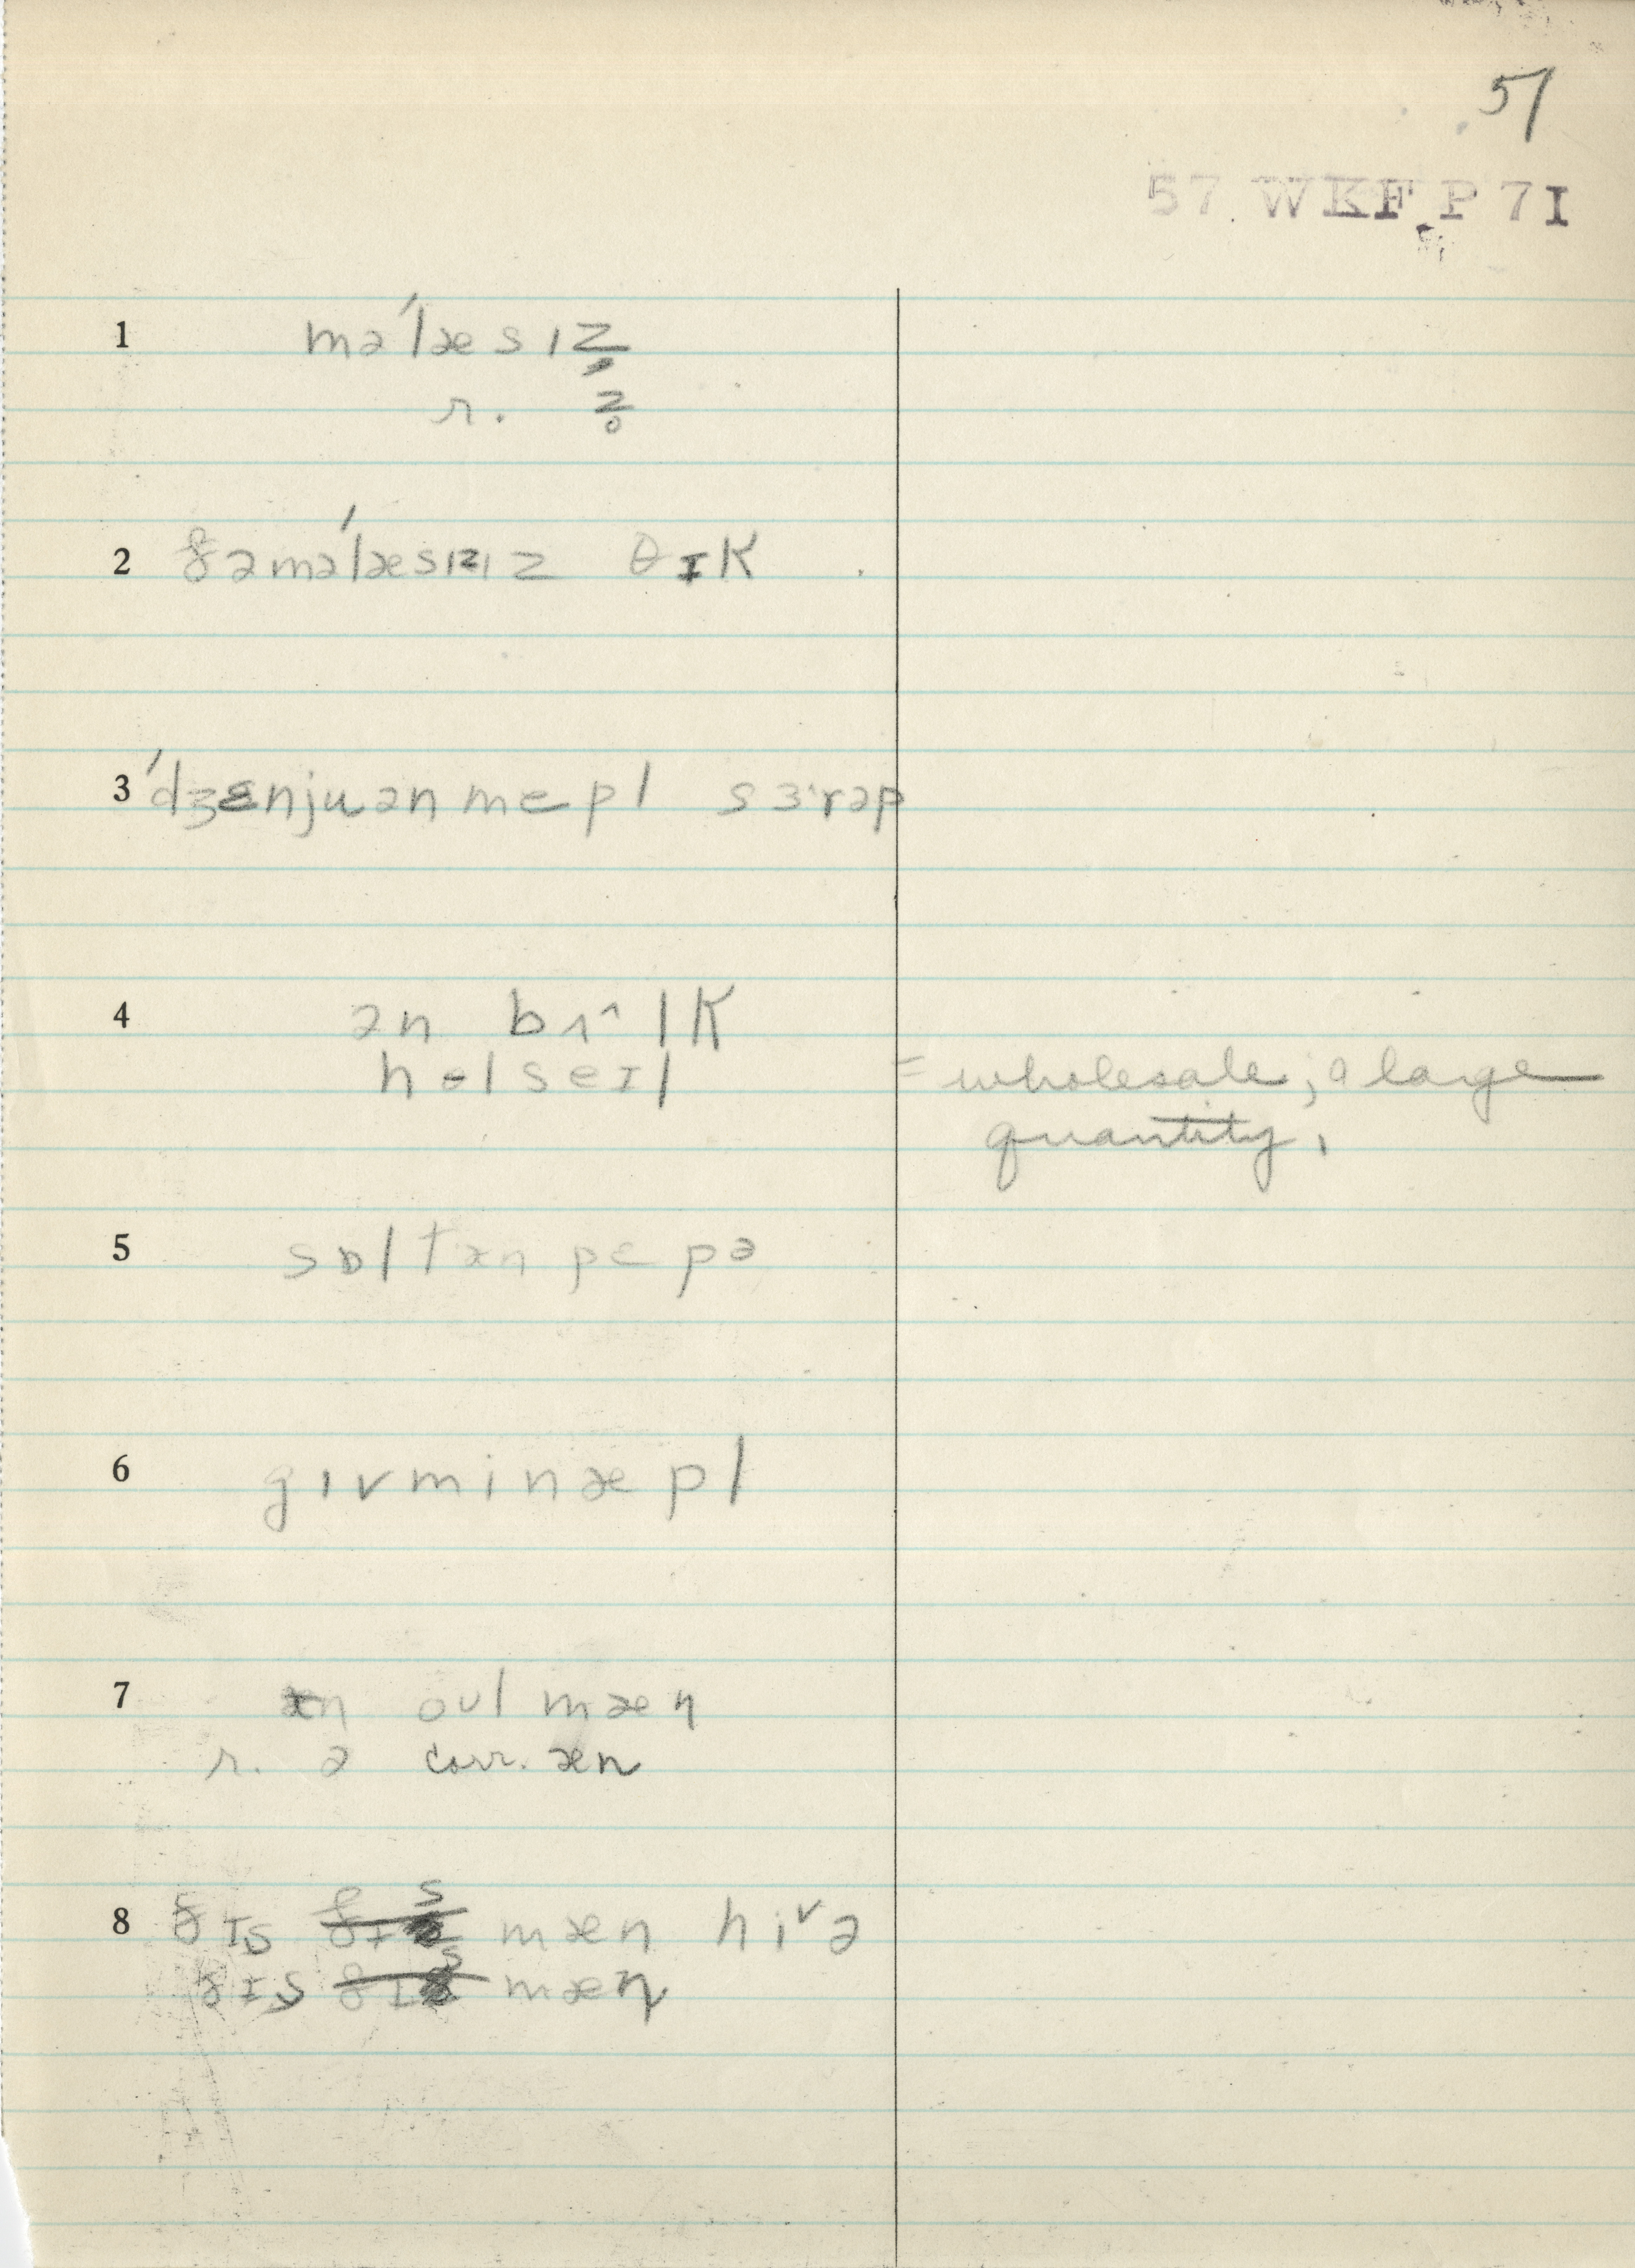 51
57 WKF P 7I
1 mə́læsɪz̥
r. z̥
2 ðəmə́læsɪzɪz θɪk
3 ́dʒɛnjuənmepl sɜ·rəp
4 ən bɪ^lk
holseɪl = wholesale; a large
quantity,
5 sɒltænpepə
6 gɪvminæpl
7 æn oʊlmæn
r. ə corr. æn
8 ðɪs ðɪs mæn hivə
ðɪs ðɪs mæn